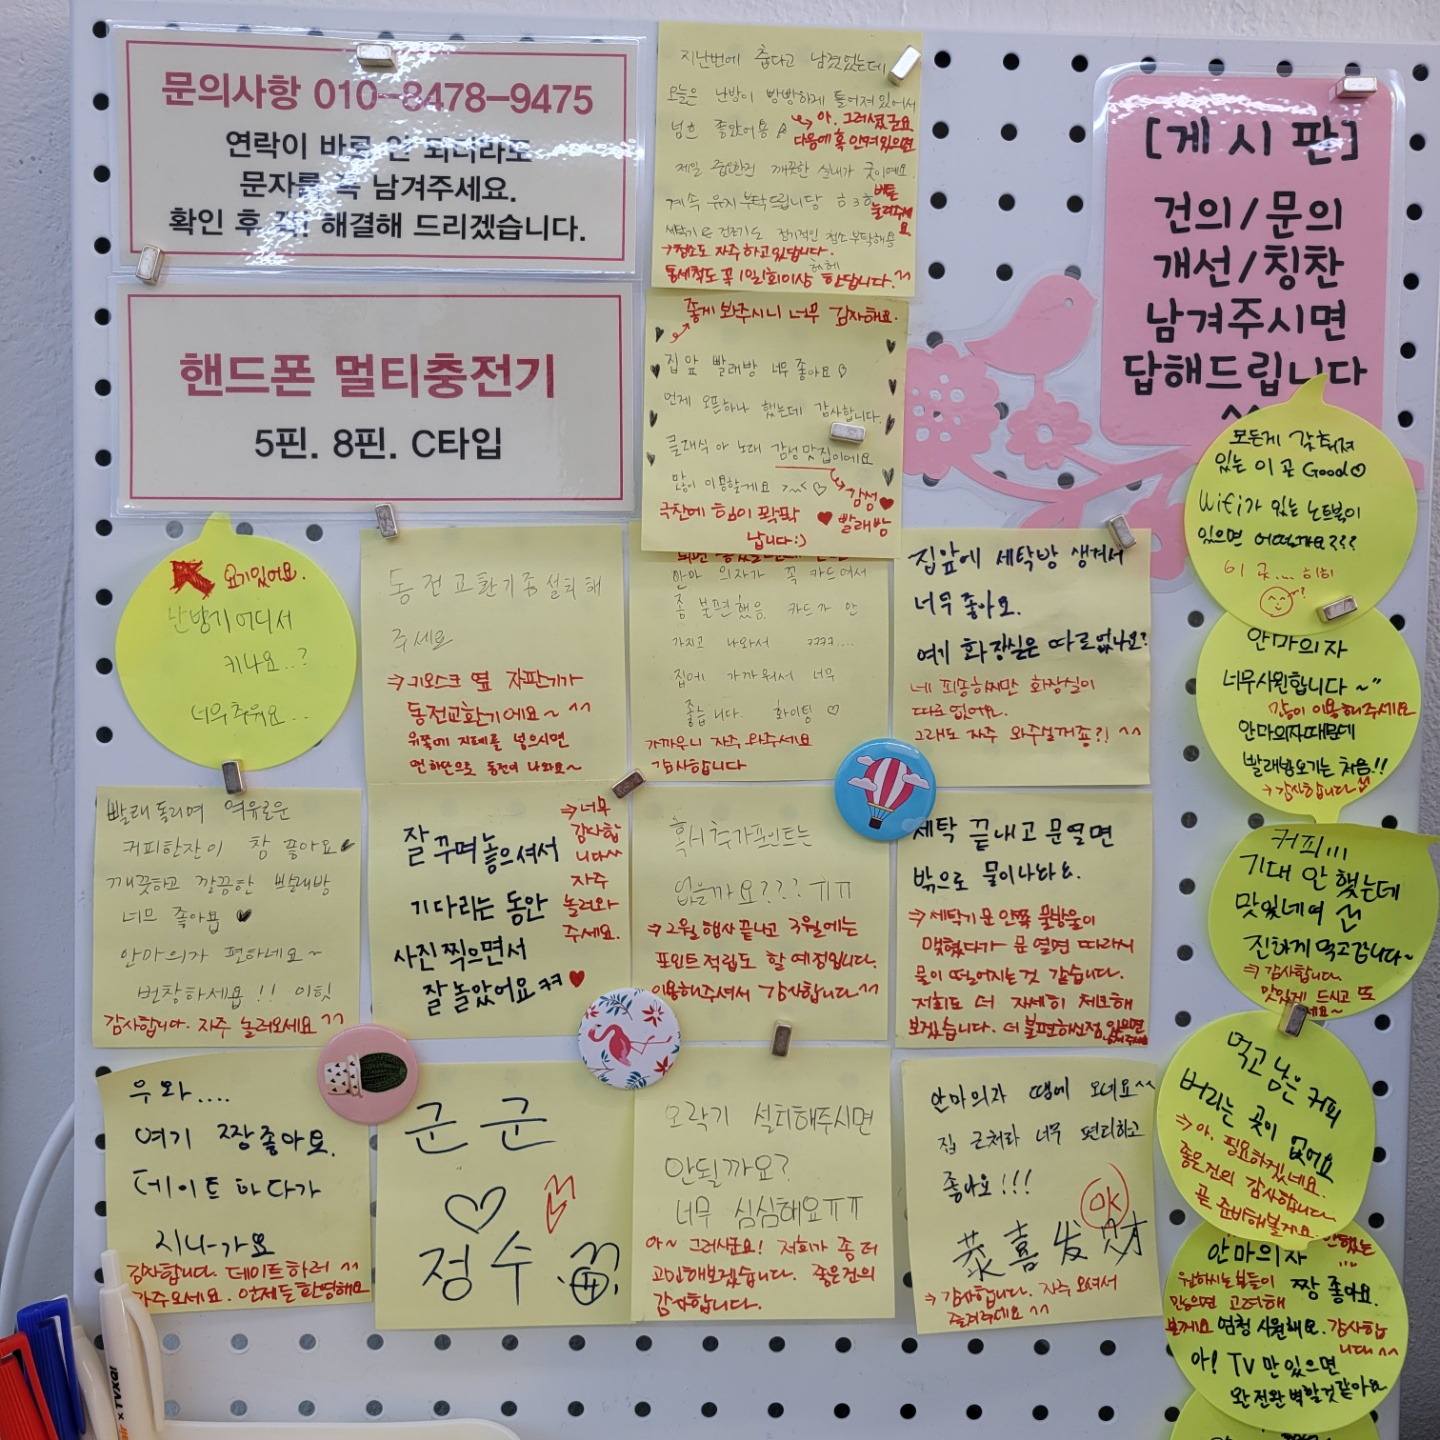 문의사항 010-8478-9475
연락이 바로 안 되더라도
문자를 꼭 남겨주세요.
확인 후 꼭! 해결해 드리겠습니다.
핸드폰 멀티충전기
5핀. 8핀. C타입
지난번에 춥다고 남겼었는데
오늘은 난방이 빵빵하게 틀어져있어서
넘흐 좋았어용
→ 아. 그러셨군요
다음에 혹 안켜있으면
버튼
눌러주세
요
제일 중요한건 깨끗한 실내가 굿이예요.
계속 유지 부탁드립니당 ㅎ3ㅎ
세탁기 & 건조기도 정기적인 청소 부탁해용
→ 청소도 자주 하고있답니다.
통세척도 꼭 1일1회이상 한답니다.^^
좋게 봐주시니 너무 감사해요.
집앞 빨래방 너무 좋아요
언제 오픈하나 했는데 감사합니다.
클래식 아 노래 감성맛집이에요
많이 이용할게요
→ 감성♥
♥ 빨래방
극찬에 힘이 팍팍
납니다:)
[게시판]
건의/문의
개선/칭찬
남겨주시면
답해드립니다
^^
모든게 갖춰져
있는 이 곳 Good
Wifi가 있는 노트북이
있으면 어떨까요???
여기있어요.
난방기어디서
키나요..?
너무추워요..
동전교환기좀설치해
주세요
⇒ 키오스크 옆 자판기가
동전교환기에요~ ^^
위쪽에 지폐를 넣으시면
맨 하단으로 동전이 나와요~
안마 의자가 꼭 카드여서
좀 불편했음. 카드가 안
가지고 나와서 ㅋㅋㅋㅋ....
집에 가까워서 너무
좋습니다. 화이팅 ♡
가까우니 자주 와주세요
감사합니다
집앞에 세탁방 생겨서
너무 좋아요.
여기 화장실은 따로없나요?
네 죄송하지만 화장실이
따로없어요.
그래도 자주 와주실꺼죵?! ^^
안마의자
너무시원합니다~"
많이 이용해주세요
안마의자때문에
빨래방오기는 처음!!
→ 감사합니다
빨래 돌리며 여유로운
커피한잔이 참 좋아요
깨끗하고 깔끔한 빨래방
너무 좋아욥 ♥
안마의가 편하네요~
번창하세욥!! 이힛
감사합니다. 자주 놀러오세요 ^^
잘 꾸며놓으셔서
기다리는 동안
사진 찍으면서
잘 놀았어요 ㅋㅋ ♥
⇒ 너무
감사합
니다^^
자주
놀러와
주세요.
혹시 추가포인트는
없을까요??? ㅠㅠ
⇒ 2월 행사 끝나고 3월에는
포인트 적립도 할 예정입니다.
이용해주셔서 감사합니다^^
세탁 끝내고 문열면
밖으로 물이나와요.
⇒ 세탁기문 안쪽 물방울이
맺혔다가 문 열면 따라서
물이 떨어지는것 같습니다.
저희도 더 자세히 체크해
보겠습니다. 더 불편하신점 있으면
커피!!!
기대 안 했는데
맛있네여
진하게 먹고갑니다~
⇒ 감사합니다.
맛있게 드시고 또
먹고 남은 커피
버리는 곳이 없어요
⇒ 아. 필요하겠네요.
좋은건의 감사합니다.
곧 준비해볼게요.
우와....
여기 짱좋아요.
데이트하다가
지나가요
감사합니다. 데이트하러 ^^
자주오세요. 언제든환영해요
군군
♡
정수
오락기 설치해주시면
안될까요?
너무 심심해요ㅠㅠ
아~ 그러시군요! 저희가 좀 더
고민해보겠습니다. 좋은건의
감사합니다.
안마의자 땜에 오네요^^
집 근처라 너무 편리하고
좋아요!!!
OK
恭喜发财
→ 감사합니다. 자주 오셔서
즐겨주세요 ^^
안마의자
짱 좋아요.
원하시는분들이
많으면 고려해
볼게요
엄청 시원해요.
감사합
니다^^
아! TV만있으면
완전완벽할것같아요
TVXQ!